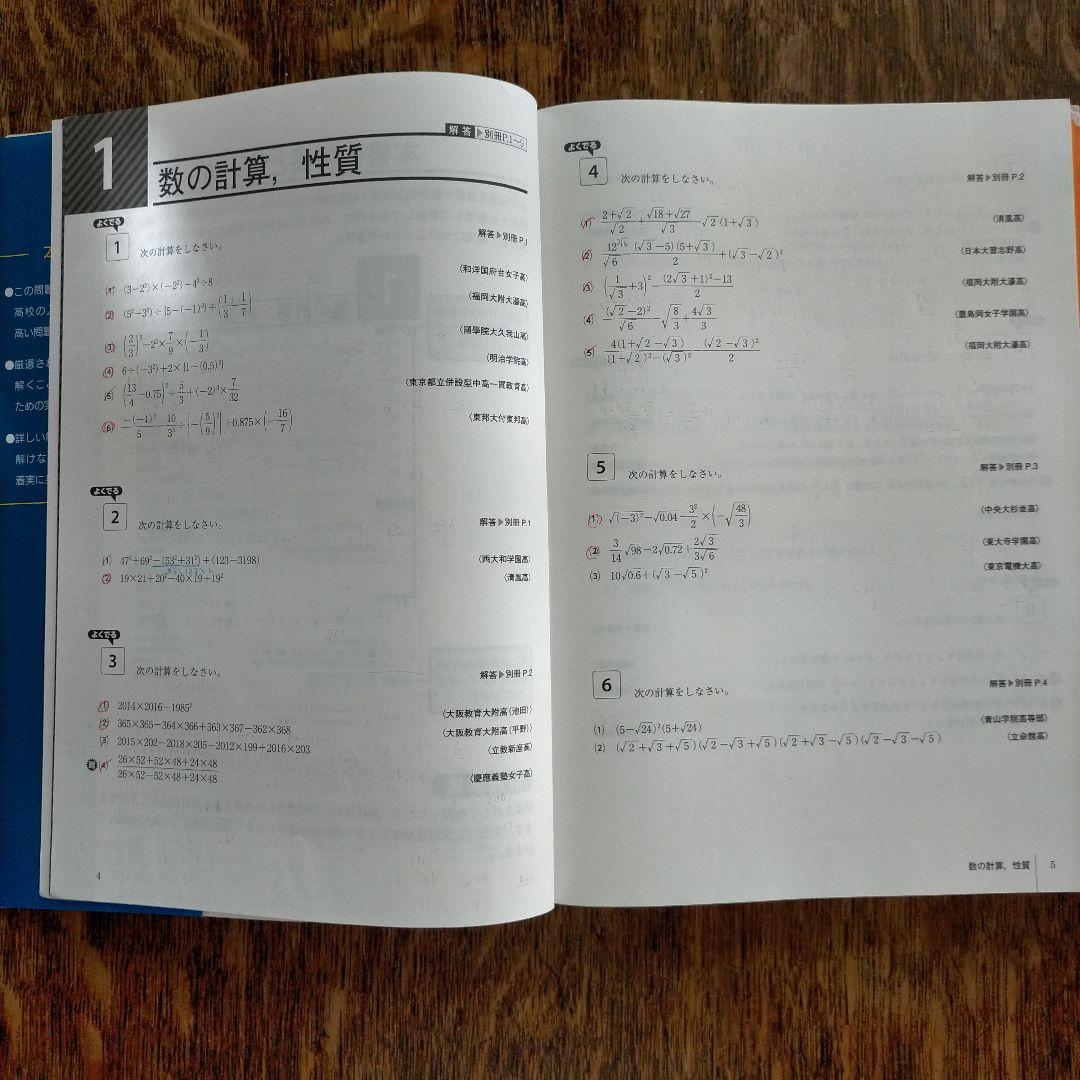 1
数の計算，性質
解答▶別冊P.1〜9
よくでる
1 次の計算をしなさい。 解答▶別冊P.1
(1) (3−2³)×(−2²)−4³÷8 〈和洋国府台女子高〉
(2) (5²−3²)÷{5−(−1)³}÷(1/3+1/7) 〈福岡大附大濠高〉
(3) (2/3)³−2²×7/9×(−1/3) 〈國學院大久我山高〉
(4) 6÷(−3²)+2×{1−(0.5)²} 〈明治学院高〉
(5) (13/4−0.75)²÷5/3+(−2)³×7/32 〈東京都立併設型中高一貫教育高〉
(6) −(−1)²/5−10/3³÷{−(5/9)²}+0.875×(−16/7) 〈東邦大付東邦高〉
よくでる
2 次の計算をしなさい。 解答▶別冊P.1
(1) 47²+69²−(53²+31²)+(123−3198) 〈西大和学園高〉
(2) 19×21+20²−40×19+19² 〈清風高〉
よくでる
3 次の計算をしなさい。 解答▶別冊P.2
(1) 2014×2016−1985² 〈大阪教育大附高(池田)〉
(2) 365×365−364×366+363×367−362×368 〈大阪教育大附高(平野)〉
(3) 2015×202−2018×205−2012×199+2016×203 〈立教新座高〉
(4) 26×52+52×48+24×48/26×52−52×48+24×48 〈慶應義塾女子高〉
4
よくでる
4 次の計算をしなさい。 解答▶別冊P.2
(1) 2+√2/√2+√18+√27/√3−√2(1+√3) 〈清風高〉
(2) 12/√6+(√3−5)(5+√3)/2+(√3−√2)² 〈日本大習志野高〉
(3) (1/√3+3)²−(2√3+1)²−13/2 〈福岡大附大濠高〉
(4) (√2−2)²/√6−√8/3+4√3/3 〈豊島岡女子学園高〉
(5) 4(1+√2−√3)/(1+√2)²−(√3)²−(√2−√3)²/2 〈福岡大附大濠高〉
5 次の計算をしなさい。 解答▶別冊P.3
(1) √(−3)²−√0.04−3²/2×(−√48/3) 〈中央大杉並高〉
(2) 3/14√98−2√0.72+2√3/3√6 〈東大寺学園高〉
(3) 10√0.6+(√3−√5)² 〈東京電機大高〉
6 次の計算をしなさい。 解答▶別冊P.4
(1) (5−√24)²(5+√24) 〈青山学院高等部〉
(2) (√2+√3+√5)(√2−√3+√5)(√2+√3−√5)(√2−√3−√5) 〈立命館高〉
数の計算，性質 5
●この問題
高校の入
高い問題
●厳選され
解くこと
ための実
●詳しい解
解けな
着実に